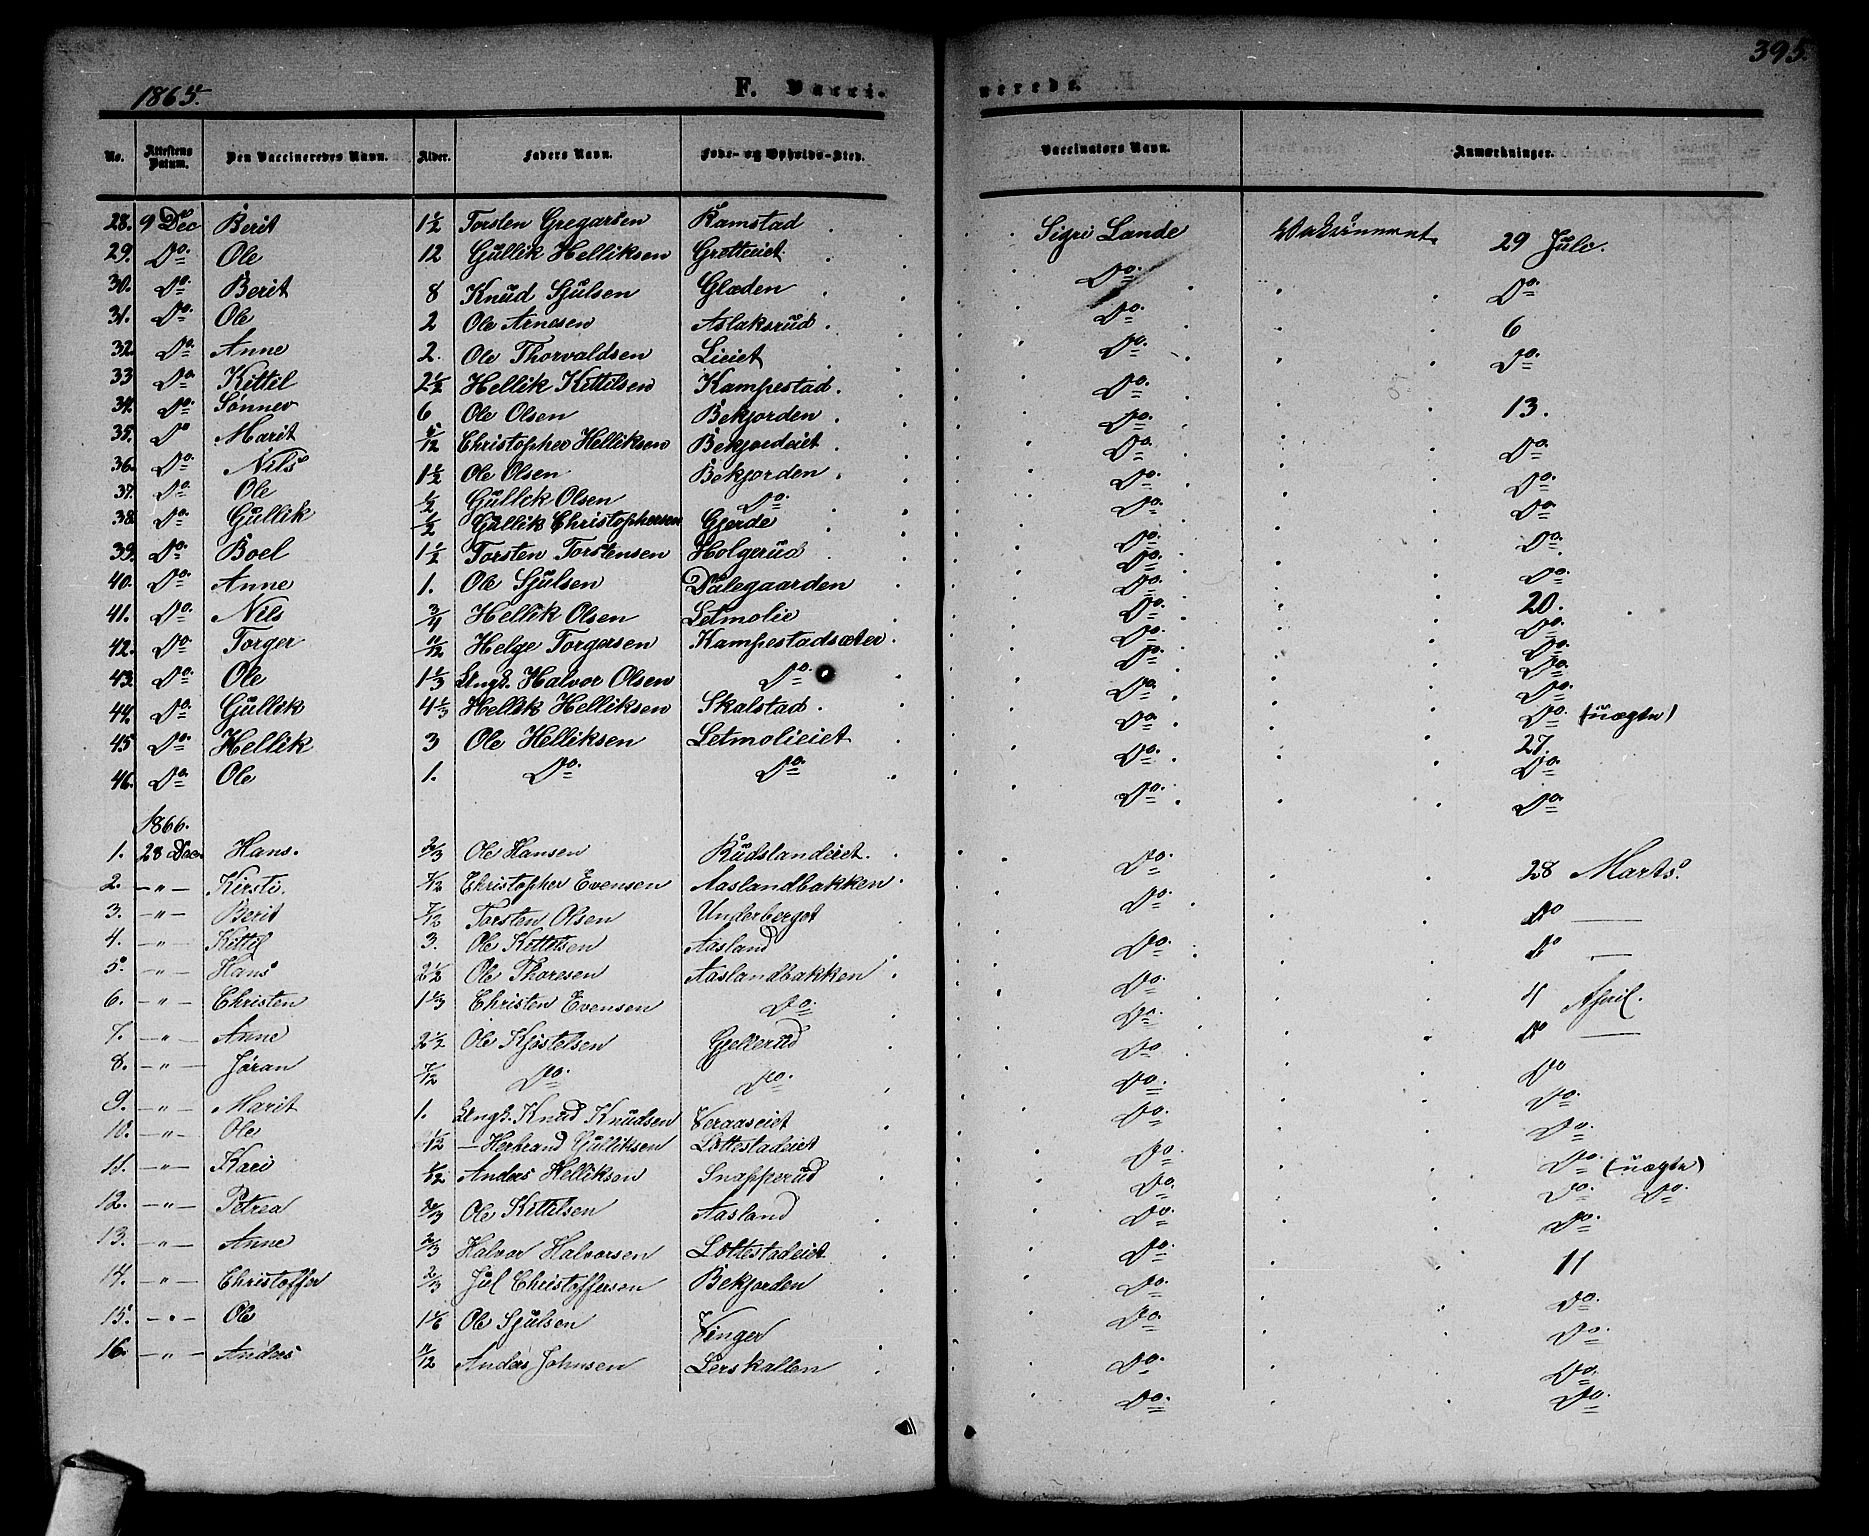 395.
1865.
F. Vacci-
nerede.
No. Attestens Datum. Den Vaccineredes Navn. Alder. Faders Navn. Føde- og Opholds-Sted. Vaccinators Navn. Anmærkninger.
28. 9 Dec Berit 1½ Torsten Gregarsen Ramstad Sigri Lande 29 Juli.
29. Do. Ole 12 Gullik Helliksen Gretteiet Do. Do.
30. Do. Berit 8 Knud Sjulsen Glæden Do. 6
31. Do. Ole 2 Ole Arnesen Aslaksrud Do. Do.
32. Do. Anne 2. Ole Thorvaldsen Lieiet Do.
33 Do. Kittil 2½ Hellik Kittilsen Kampestad. Do. 13.
34. Do. Sønnev 6 Ole Olsen Bekjorden Do. Do.
35. Do Marit 5/12 Christopher Helliksen Bekjordeiet Do. Do.
36. Do. Nils 1½ Ole Olsen Bekjorden Do. Do.
37. Do. Ole ½ Gullik Olsen Do. Do. Do.
38. Do. Gullik ½ Gullik Christophersen Gjerde Do. Do.
39. Do. Boel 1½ Torsten Torstensen Holgerud Do. 20.
40. Do. Anne 1. Ole Sjulsen Dalegaarden Do. Do.
41. Do. Nils 3/4 Hellik Olsen Letmolie Do. Do.
42. Do. Torger 11/12 Helge Torgersen Kampestadsæter Do. Do.
43. Do. Ole 1⅓ Ungk. Halvor Olsen Do. Do. Do. (uægte)
44. Do. Gullik 4⅓ Hellik Helliksen Skalstad. Do. 27.
45 Do. Hellik 3 Ole Helliksen Letmolieiet Do. Do.
46. Do. Ole 1. Do. Do. Do. Do.
1866.
1. 28 Dec. Hans. 2/3 Ole Hansen Rudslandeiet. Do. 28 Marts.
2. -"- Kirsti. Christopher Evensen Aaslandbakken Do. Do —
3. -"- Berit 7/12 Torsten Olsen Underberget Do. Do —
4. -"- Kittil 3. Ole Kittilsen Aasland Do. 4 April.
5. -"- Hans 2½ Ole Thoresen Aaslandbakken Do. Do —
6. -"- Christen Christen Evensen Do. Do. Do
7. -"- Anne 2½ Ole Kjøstelsen Gjellerud Do Do.
8. -"- Jøran 7/12 Do. Do. Do. Do.
9. -"- Marit 1. Ungk. Knud Knudsen Veraaseiet Do. Do. (uægte)
10. -"- Ole — Herbrand Gulliksen Lottestadeiet Do. Do. Do.
11. -"- Kari Anders Helliksen Snapperud Do. Do.
12. -"- Petrea 2/3 Ole Kittilsen Aasland Do. 11
13. -"- Anne 2/3 Halvor Halvorsen Lottestadeiet Do. Do.
14. -"- Christoffer 2/3 Juel Christoffersen Bekjorden Do. Do.
15. -"- Ole Ole Sjulsen Vinger Do. Do.
16. -"- Anders 11/12 Anders Johnsen Lerskallen Do. Do.